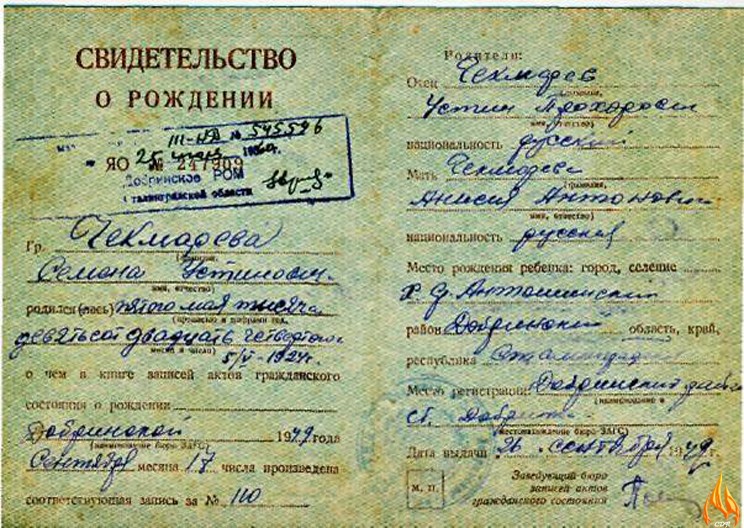 СВИДЕТЕЛЬСТВО
О РОЖДЕНИИ
III-НД № 545526
ЯО № 247909
25
Добринское РОМ
Сталинградской области
Гр. Чехмадева
(фамилия,
Семона Устинович
имя, отчество)
родился (лась) пятого мая тысяча
(прописью и цифрами год,
девятьсот двадцать четвертого
месяц и число) 5/V-1924г.
о чем в книге записей актов гражданского
состояния о рождении
Добринской 1949 года
(наименование бюро ЗАГС)
Сентября месяца 17 числа произведена
соответствующая запись за № 110
Родители:
Отец Чехмадев
(фамилия,
Устин Прохорович
имя, отчество)
национальность русский
Мать Чехмадева
(фамилия,
Анисия Антоновна
имя, отчество)
национальность русская
Место рождения ребенка: город, селение
х. Антошинский
район Добринский область, край,
республика Сталинградская
Место регистрации: Добринский
(наименование и
ст. Добринка
местонахождение бюро ЗАГС)
Дата выдачи 26 сентября 1949г.
М. П.
Заведующий бюро
записей актов
гражданского состояния